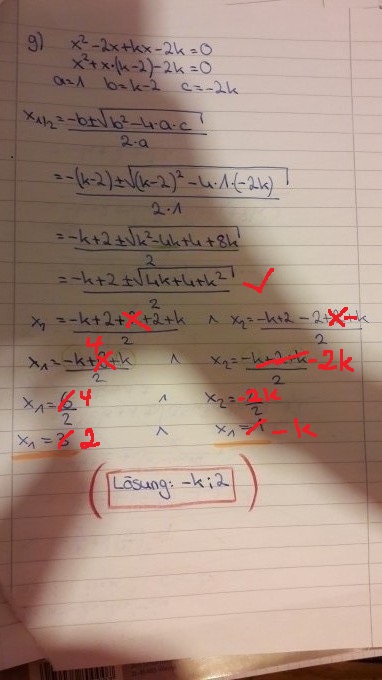 g) x² - 2x + kx - 2k = 0
x² + x·(k-2) - 2k = 0
a=1 b=k-2 c=-2k
x1/2 = -b±√b² - 4·a·c / 2·a
= -(k-2)±√(k-2)² - 4·1·(-2k) / 2·1
= -k+2 ±√k²-4k+4+8k / 2
= -k+2 ±√4k+4+k² / 2 ✓
x1 = -k+2+ +2+k / 2 ∧ x2 = -k+2-2+ -k / 2
x1 = -k+ 4 +k / 2 ∧ x2 = -k+2+k -2k / 2
x1 = 6 4 / 2 ∧ x2 = -2k / 2
x1 = 3 2 ∧ x1 = 1 -k
(Lösung: -k; 2)